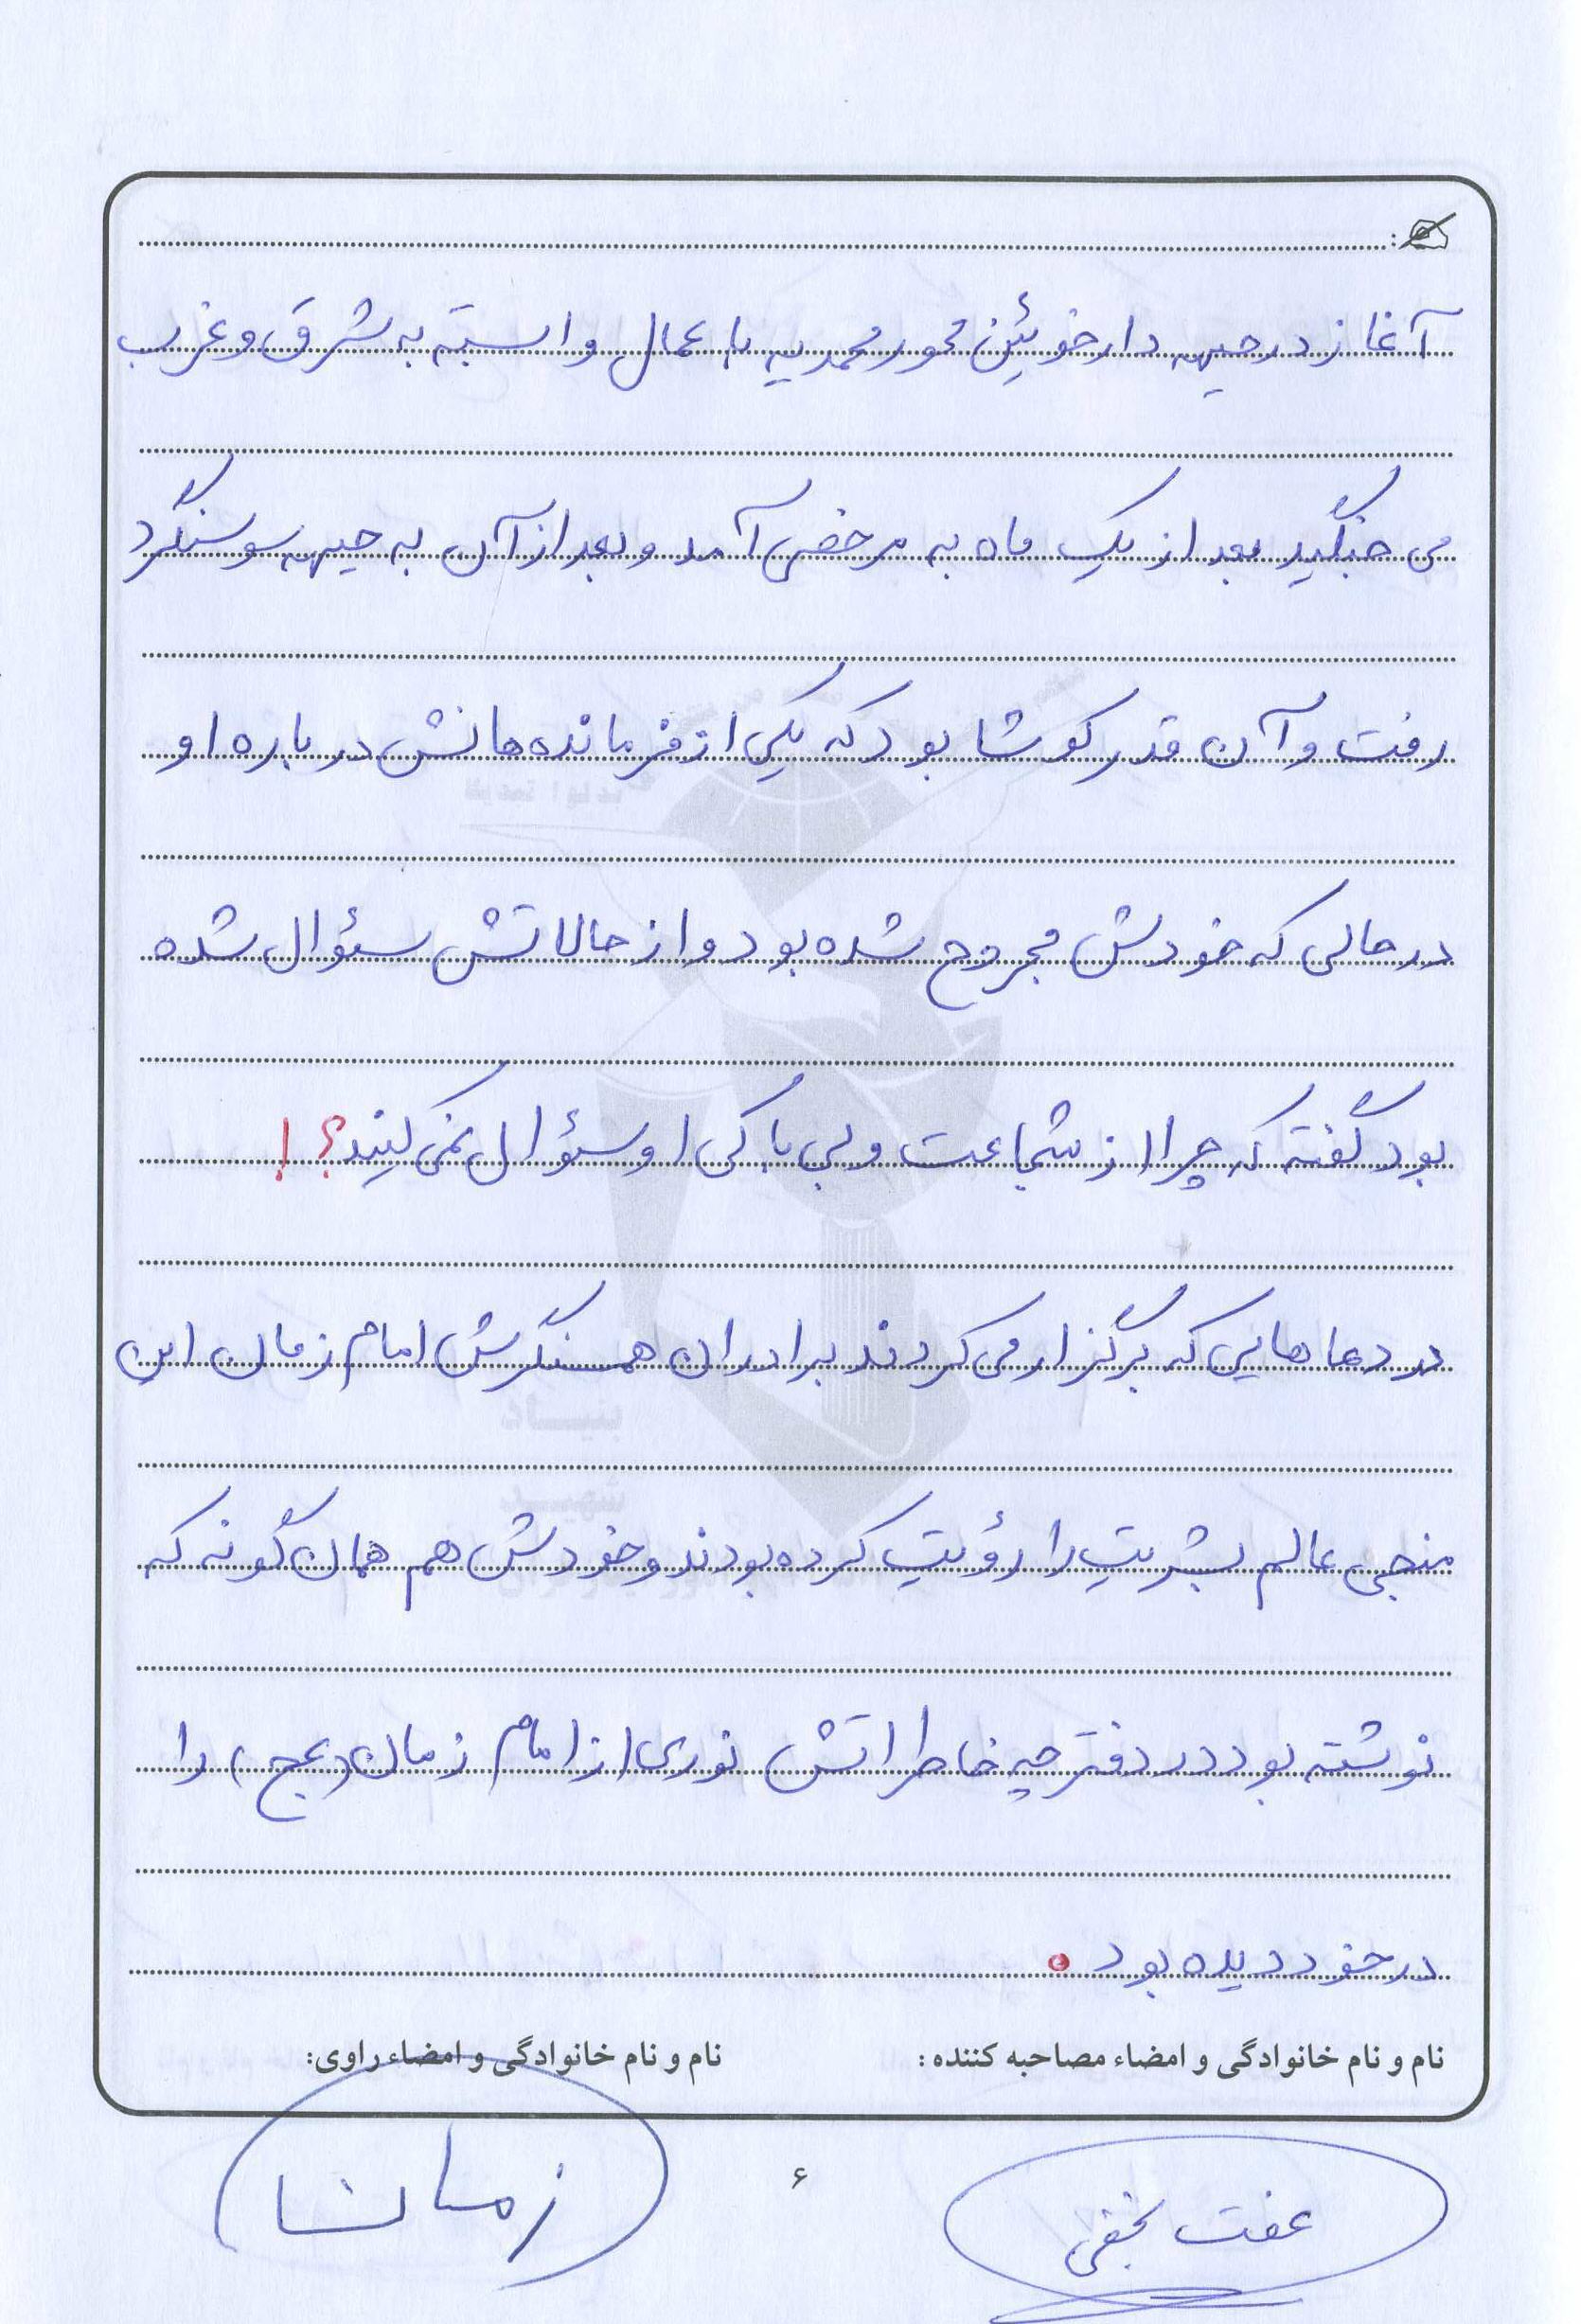 :
آغاز در جبهه دارخوئین محور محمدیه با عمال وابسته به شرق و غرب
می جنگید بعد از یک ماه به مرخصی آمد و بعد از آن به جبهه سوسنگرد
رفت و آن قدر کوشا بود که یکی از فرمانده هانش درباره او
در حالی که خودش مجروح شده بود و از حالاتش سئوال شده
بود گفته که چرا از شجاعت و بی باکی او سئوال نمی کنید؟!
در دعاهایی که برگزار می کردند برادران همسنگرش امام زمان این
منجی عالم بشریت را رؤیت کرده بودند و خودش هم همان گونه که
نوشته بود در دفترچه خاطراتش نوری از امام زمان (عج) را
در خود دیده بود .
نام و نام خانوادگی و امضاء مصاحبه کننده :
نام و نام خانوادگی و امضاء راوی:
عفت نجفی
۶